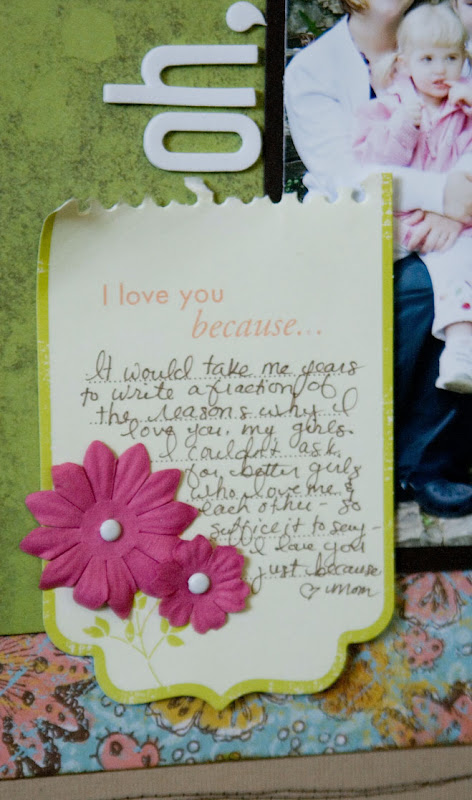 oh,
I love you
because...
It would take me years
to write a fraction of
the reasons why I
love you, my girls.
I couldn't ask
for better girls
who love me &
each other - so
suffice it to say -
I love you
just because
♡ Mom